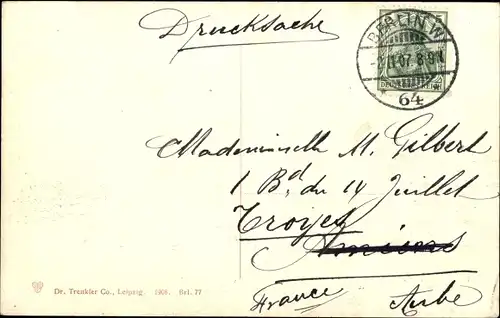 Drucksache
BERLIN W.
07. 8-9 N.
DEUTSCHES REICH
64
Mademoiselle M. Gilbert
1 Bd. du 14 Juillet
Troyes
Amiens
France Aube
Dr. Trenkler Co., Leipzig. 1906. Brl. 77